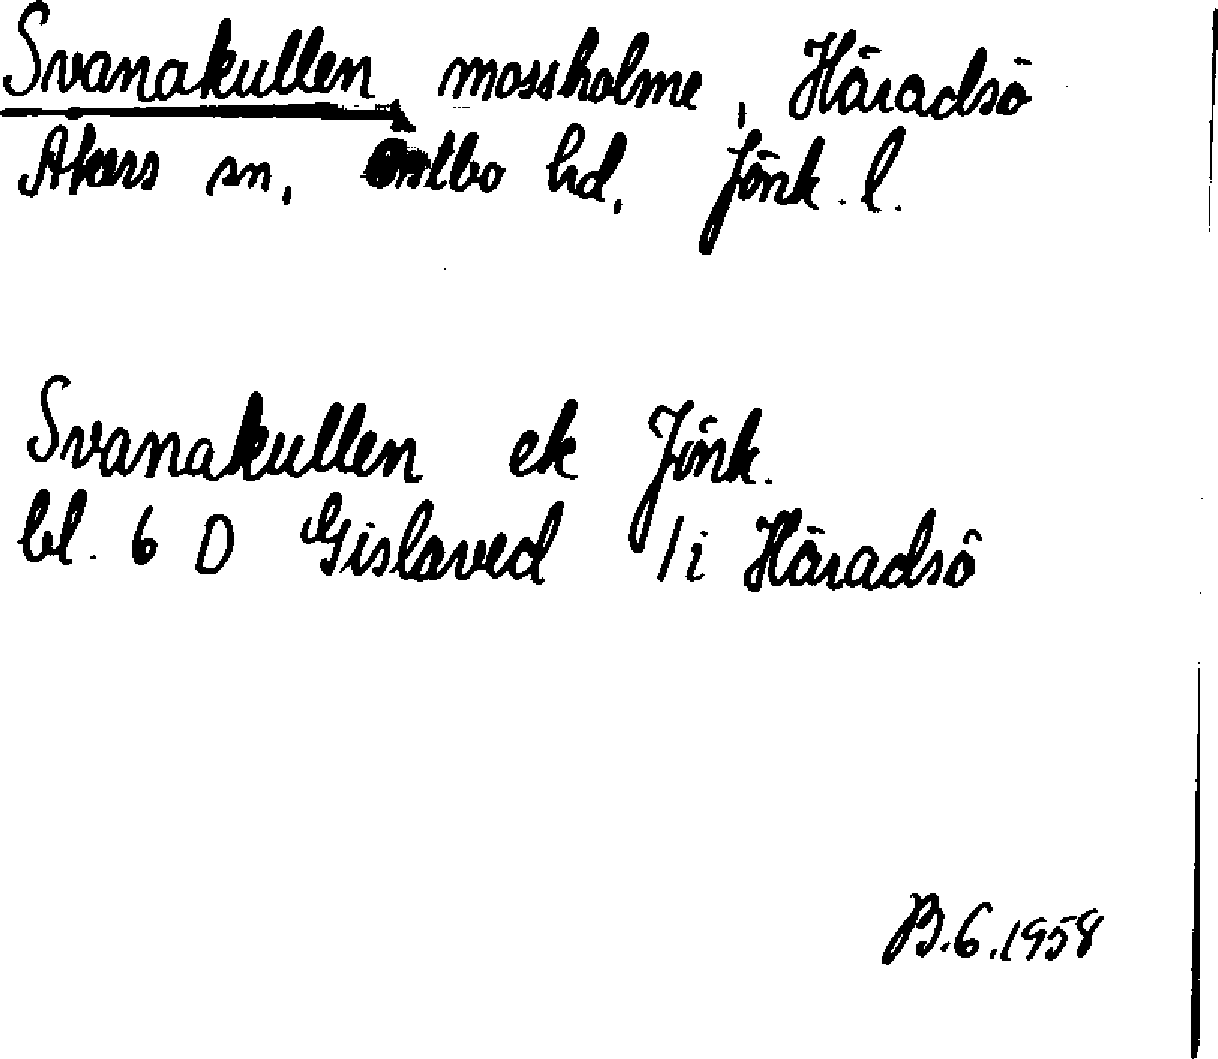 Svanakullen, mossholme, Häradsö
Åkers sn, Östbo hd, Jönk. l.
Svanakullen ek Jönk.
bl. 6 D Gislaved /i Häradsö
B.G.1958